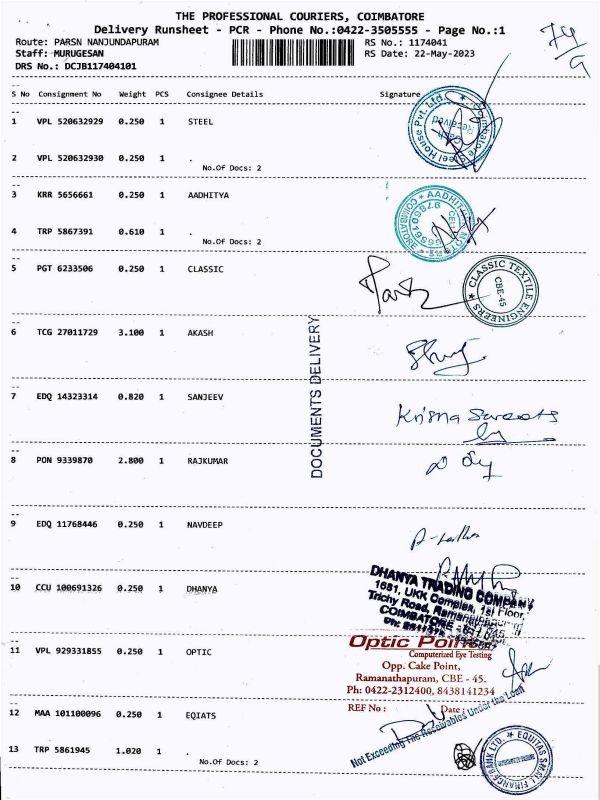 THE PROFESSIONAL COURIERS, COIMBATORE
Delivery Runsheet - PCR - Phone No.:0422-3505555 - Page No.:1
Route: PARSN NANJUNDAPURAM RS No.: 1174041
Staff: MURUGESAN RS Date: 22-May-2023
DRS No.: DCJB117404101
S No Consignment No Weight PCS Consignee Details Signature
1 VPL 520632929 0.250 1 STEEL
2 VPL 520632930 0.250 1 .
No.Of Docs: 2
Coimbatore Steel House Pvt. Ltd.
Received
3 KRR 5656661 0.250 1 AADHITYA
4 TRP 5867391 0.610 1 .
No.Of Docs: 2
5 PGT 6233506 0.250 1 CLASSIC
CLASSIC TEXTILE ENGINEERS
CBE-45
6 TCG 27011729 3.100 1 AKASH
DOCUMENTS DELIVERY
7 EDQ 14323314 0.820 1 SANJEEV
Krisna Sweets
8 PON 9339870 2.800 1 RAJKUMAR
9 EDQ 11768446 0.250 1 NAVDEEP
10 CCU 100691326 0.250 1 DHANYA
DHANYA TRADING COMPANY
1681, UKK Complex, 1st Floor,
Trichy Road, Ramanathapuram
COIMBATORE
11 VPL 929331855 0.250 1 OPTIC
Optic Point
Computerized Eye Testing
Opp. Cake Point,
Ramanathapuram, CBE - 45.
Ph: 0422-2312400, 8438141234
REF No : Date :
Not Exceeding The Receivables Under the Loan
12 MAA 101100096 0.250 1 EQIATS
13 TRP 5861945 1.020 1 .
No.Of Docs: 2
EQUITAS SMALL FINANCE BANK LTD.